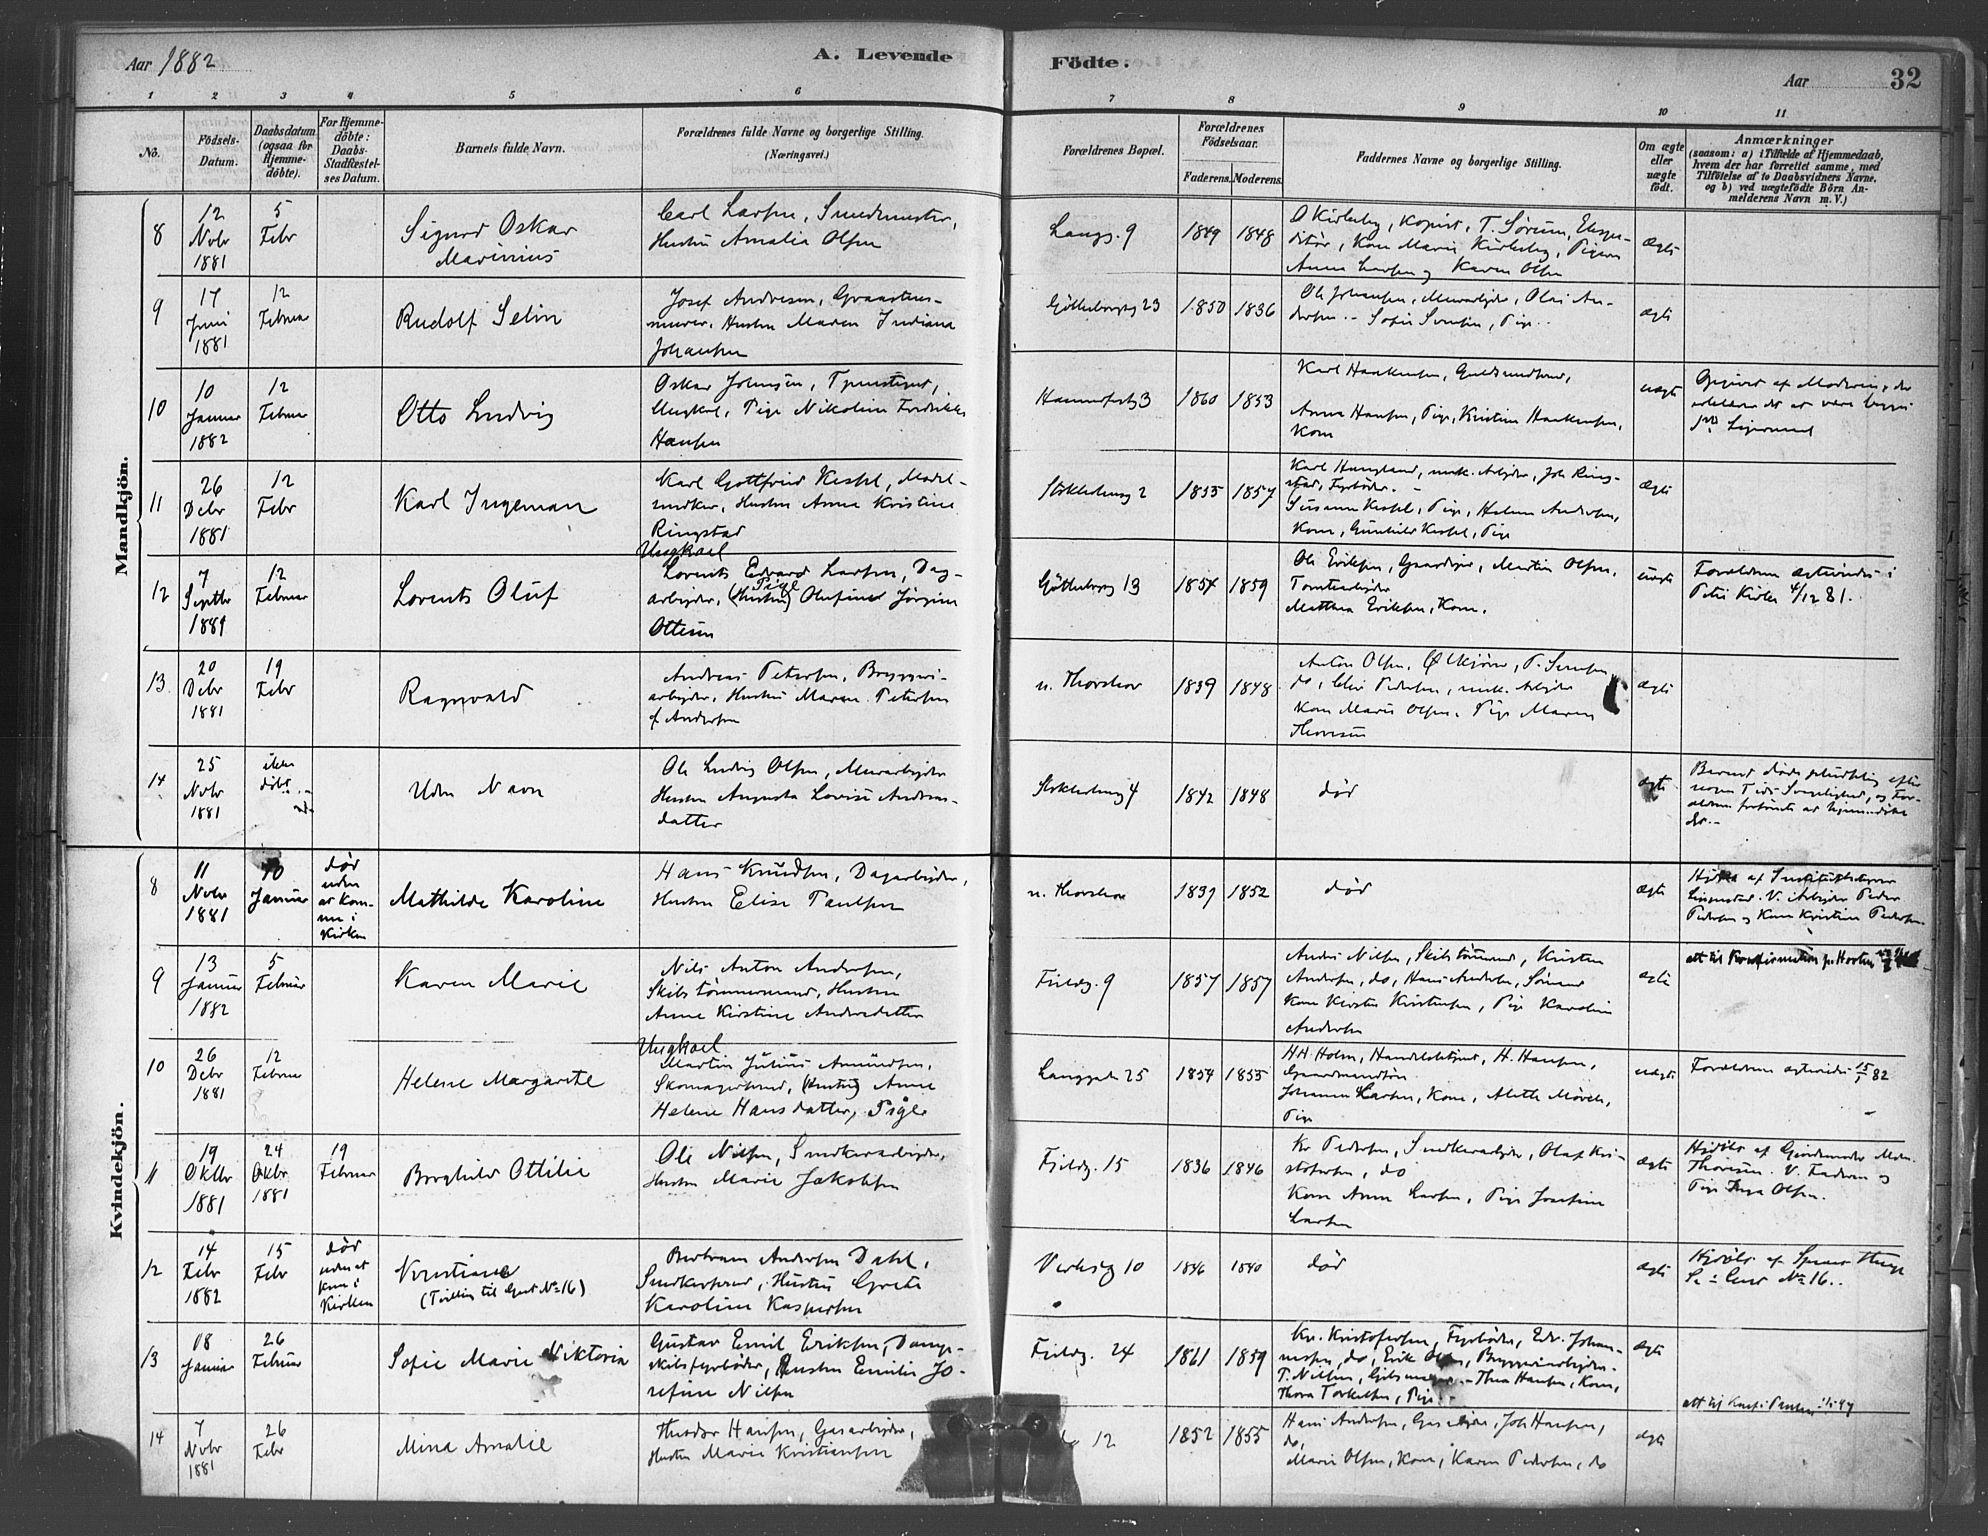 Aar 1882
A. Levende
Födte.
Aar
32
1 2 3 4 5 6 7 8 9 10 11
No.
Födsels-
Datum.
Daabsdatum
(ogsaa for
Hjemme-
döbte).
For Hjemme-
döbte:
Daabs-
Stadfæstel-
ses Datum.
Barnets fulde Navn.
Forældrenes fulde Navne og borgerlige Stilling.
(Næringsvei.)
Forældrenes Bopæl.
Forældrenes
Födselsaar.
Faderens. Moderens.
Faddernes Navne og borgerlige Stilling.
Om ægte
eller
uægte
födt.
Anmærkninger
(saasom: a) i Tilfælde af Hjemmedaab,
hvem der har forrettet samme, med
Tilföielse af to Daabsvidners Navne,
og b) ved uægtefödte Börn An-
melderens Navn m. V.)
Mandkjön.
8
12
Nvbr
1881
5
Febr
Sigurd Oskar
Marinius
Carl Larsen, Smedmester,
Hustru Amalia Olsen
Langg. 9
1849
1848
O Kirkeby, Kopist, T. Sørum, Ekspe-
ditør, Kone Marie Kirkeby, Pigerne
Anna Larsen og Karen Olsen
ægte
9
17
Juni
1881
12
Februar
Rudolf Selin
Josef Andresen, Graastens-
murer, Hustru Maren Indiana
Johansen
Götteborgg 23
1850
1836
Ole Johansen, Murarbejder, Olai An-
dersen - Sofie Svensen, Pige
ægte
10
10
Januar
1882
12
Februar
Otto Ludvig
Oskar Johnsen,
Ungkarl, Pige Nikoline Fredrikke
Hansen
Hammerfestg 3
1860
1853
Karl Haakensen, Guldsmedsvend,
Anna Hansen, Pige, Kristine Haakensen,
Kone
uægte
Opgivet af Moderen, der
erklærer det at være begges
1ste Leiermaal
11
26
Debr
1881
12
Febr
Karl Ingeman
Karl Gottfried Kessel, Model-
snedker, Hustru Anna Kristine
Ringstad
Stokholmsg 2
1855
1857
Karl Haugland, mek. Arbejder, Joh Ring-
stad, Fyrbøder. -
Susanne Kessel, Pige, Helene Andersen,
Kone, Gunhild Kessel, Pige
ægte
12
7
Septbr
1889
12
Februar
Lorents Oluf
Ungkarl
Lorents Edvard Larsen, Dag-
Pige
arbejder, (Hustru) Olufine Jørgine
Ottesen
Götteborg 13
1854
1859
Ole Eriksen, Gaardejer, Martin Olsen,
Tomtearbejder
Matthea Eriksen, Kone.
uægte
Forældrene ægteviedes i
Petri Kirke 4/12 81.
13
20
Debr
1881
19
Febr
Ragnvald
Andreas Petersen, Bryggeri-
arbejder, Hustru Maren Petersen
f. Andersen
n. Thorshov
1839
1848
Anton Olsen, Ølkjører, P. Svensen,
do, Chr Pedersen, mek. Arbejder
Kone Marie Olsen, Pige Maren
Thoresen
ægte
14
25
Nvbr
1881
ikke
døbt
Uden Navn
Ole Ludvig Olsen, Murarbejder
Hustru Augusta Lovise Andreas-
datter
Stokholmsg 4
1842
1848
død
ægte
Barnet døde pludselig efter
nogen Tids Svagelighed, og For-
ældrene forsømte at hjemmedøbe
det. -
Kvindekjön.
8
11
Nvbr
1881
10
Januar
død
uden
at kom-
me i
Kirken
Mathilde Karoline
Hans Knudsen, Dagarbejder,
Hustru Elise Paulsen
n. Thorshov
1837
1852
død
ægte
V. Arbejder Peder
Pedersen og Kone Kristine Pedersen.
9
13
Januar
1882
5
Februar
Karen Marie
Nils Anton Andersen,
Skibstømmermand, Hustru
Anne Kirstine Andersdatter
Fjeldg. 9
1857
1857
Anders Nilsen, Skibstømmermand, Kristen
Andersen, do, Hans Andersen, Sømand
Kone Kirsten Kristensen, Pige Karoline
Andersen
ægte
att til Konfirmation
10
26
Debr
1881
12
Februar
Helene Margarete
Ungkarl
Martin Julius Amundsen,
Skomagersvend, (Hustru) Anne
Helene Hansdatter, Pige
Langgade 25
1854
1855
HH Holm, Handelsbetjent, H. Hansen,
Gaardmandsøn
Johanne Larsen, Kone, Alette Mörch,
Pige
uægte
Forældrene ægteviedes 15/1 82
11
19
Oktbr
1881
24
Oktbr
1881
19
Februar
Borghild Ottilie
Ole Nilsen, Snedkerarbejder,
Hustru Marie Jakobsen
Fjeldg. 15
1836
1846
Kr Pedersen, Snedkerarbejder, Olaf Kri-
stofersen, do
Kone Anna Larsen, Pige Josefine
Larsen
ægte
Hjdøbt af Gjordemoder
Thoresen. V. Faderen og
Pige Inga Olsen.
12
14
Febr
1882
15
Febr
død
uden at
kom. i
Kirken
Kristiane
(Tvilling til Gut No 16)
Bertram Andersen Dahl,
Snedkersvend, Hustru Grete
Karoline Kaspersen
Verksg 10
1846
1840
død
ægte
Se Gut No 16.
13
08
Januar
26
Februar
Sofie Marie Viktoria
Gustav Emil Eriksen, Damp-
skibsfyrbøder, Hustru Emilie Jo-
sefine Nilsen
Fjeldg. 24
1861
1859
Kr. Kristofersen, Fyrbøder, Edv. Johan-
nesen, do, Erik Olsen, Bryggeriarbejder
T. Nilsen, - Thea Hansen, Kone,
Thora Torkelsen, Pige
ægte
14
7
Nvbr
1881
26
Febr
Mina Amalie
Theodor Hansen, Gasarbejder,
Hustru Marie Kristiansen
12
1852
1855
Hans Andersen, Gasarbejder, Joh Hansen,
do,
Marie Olsen, Kone, Karen Pedersen, do
ægte